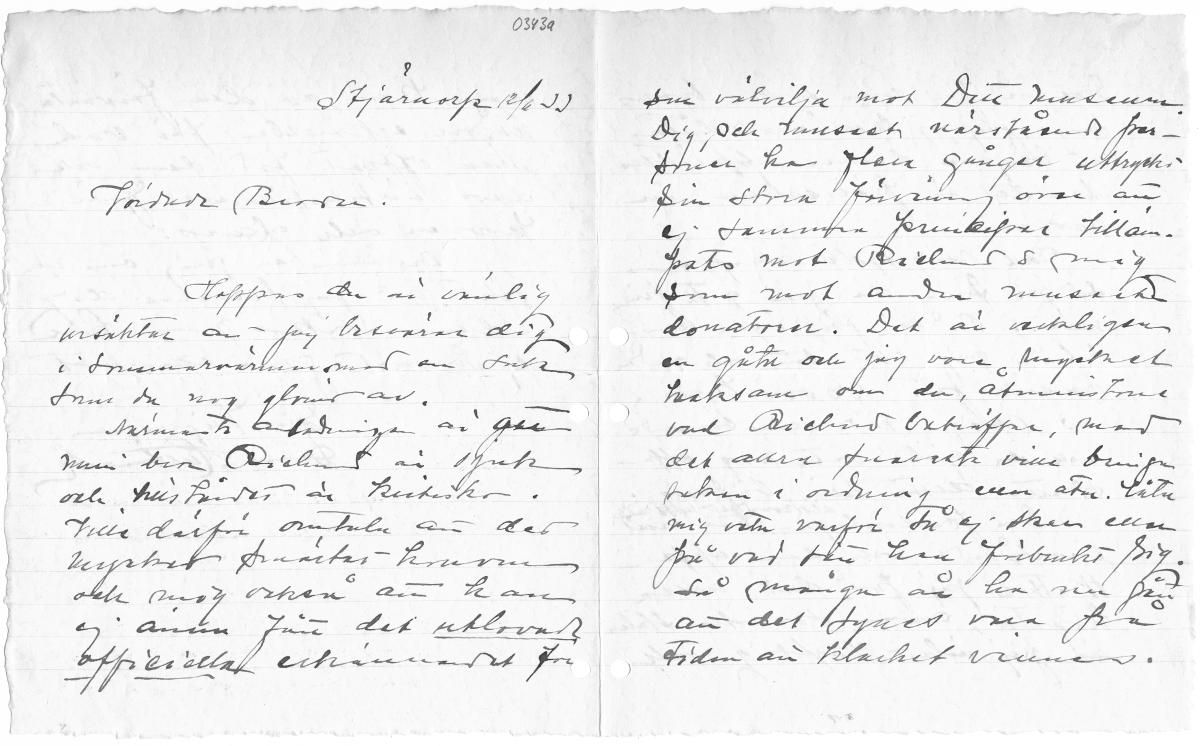 0343a
Stjärnorp
Värdade Broder.
Hoppas du är vänlig
ursäktar att jag besvärar dig
i sommarvärmen med en sak
som du nog glömt av.
Närmaste anledningen är att
min bror Rickard är sjuk
och tillståndet är kritiskt.
Ville därför omtala att det
mycket smärtat honom
och mig också att han
ej ännu fått det utlovade
officiella erkännandet för
sin välvilja mot Ditt museum.
Dig och museet närstående per-
soner ha flera gånger uttryckt
sin stora förvåning över att
ej samma principer tilläm-
pats mot Rickard & mig
som mot andra museets
donatorer. Det är verkligen
en gåta och jag vore mycket
tacksam om du, åtminstone
vad Rickard beträffar, med
det allra snaraste ville bringa
saken i ordning eller åtm. låta
mig veta varför så ej sker eller
på vad sätt han förbrukt sig.
Så många år ha nu gått
att det synes vara från
tiden att klarhet vinnes.